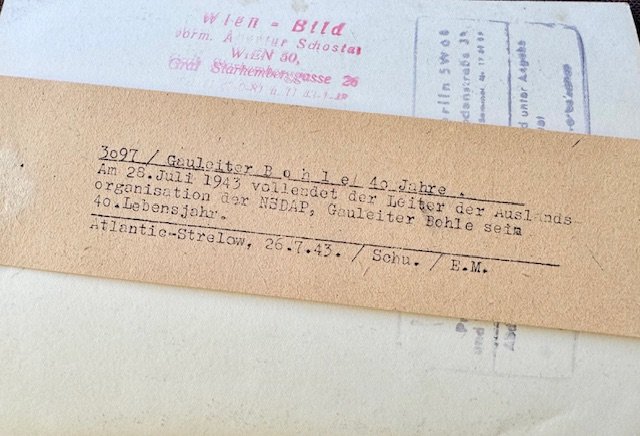 Wien - Bild
vorm. Agentur Schostal
WIEN 50,
Graf Starhemberggasse 26
Berlin SW 68
3097 / Gauleiter B o h l e/ 40 Jahre .
Am 28.Juli 1943 vollendet der Leiter der Auslands-
organisation der NSDAP, Gauleiter Bohle sein
40.Lebensjahr.
Atlantic-Strelow, 26.7.43. / Schu. / E.M.
und